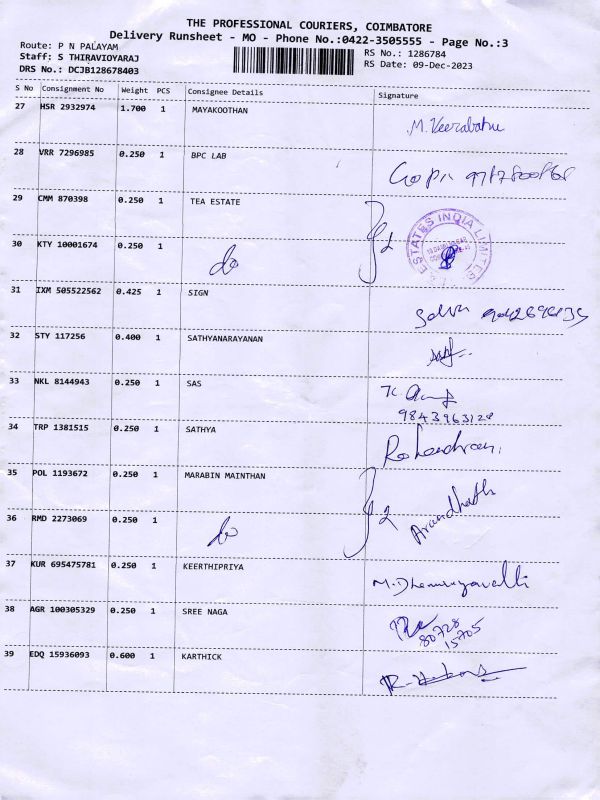 THE PROFESSIONAL COURIERS, COIMBATORE
Delivery Runsheet - MO - Phone No.:0422-3505555 - Page No.:3
Route: P N PALAYAM
Staff: S THIRAVIOYARAJ
DRS No.: DCJB128678403
RS No.: 1286784
RS Date: 09-Dec-2023
S No Consignment No Weight PCS Consignee Details Signature
27 HSR 2932974 1.700 1 MAYAKOOTHAN M. Veerabathu
28 VRR 7296985 0.250 1 BPC LAB Gopi
29 CMM 870398 0.250 1 TEA ESTATE
ESTATES INDIA LIMITED
30 KTY 10001674 0.250 1 do
31 IXM 505522562 0.425 1 SIGN
32 STY 117256 0.400 1 SATHYANARAYANAN
33 NKL 8144943 0.250 1 SAS
34 TRP 1381515 0.250 1 SATHYA
35 POL 1193672 0.250 1 MARABIN MAINTHAN
36 RMD 2273069 0.250 1 do
37 KUR 695475781 0.250 1 KEERTHIPRIYA
38 AGR 100305329 0.250 1 SREE NAGA 80728
15705
39 EDQ 15936093 0.600 1 KARTHICK